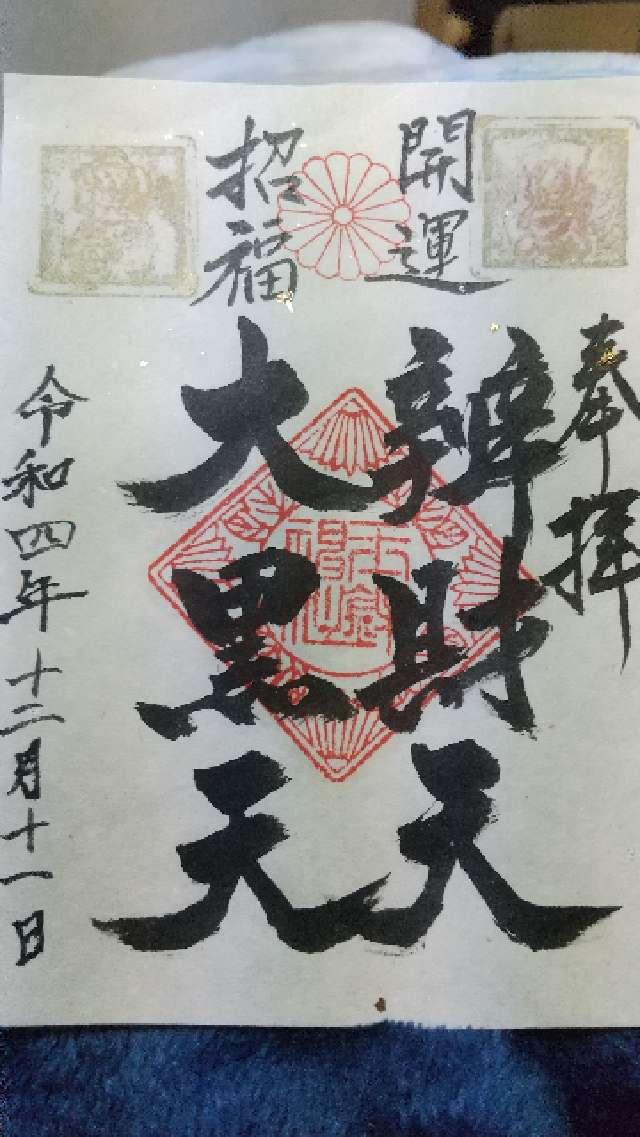 奉拝
開運
辨財天
招福
大黒天
令和四年十二月十一日